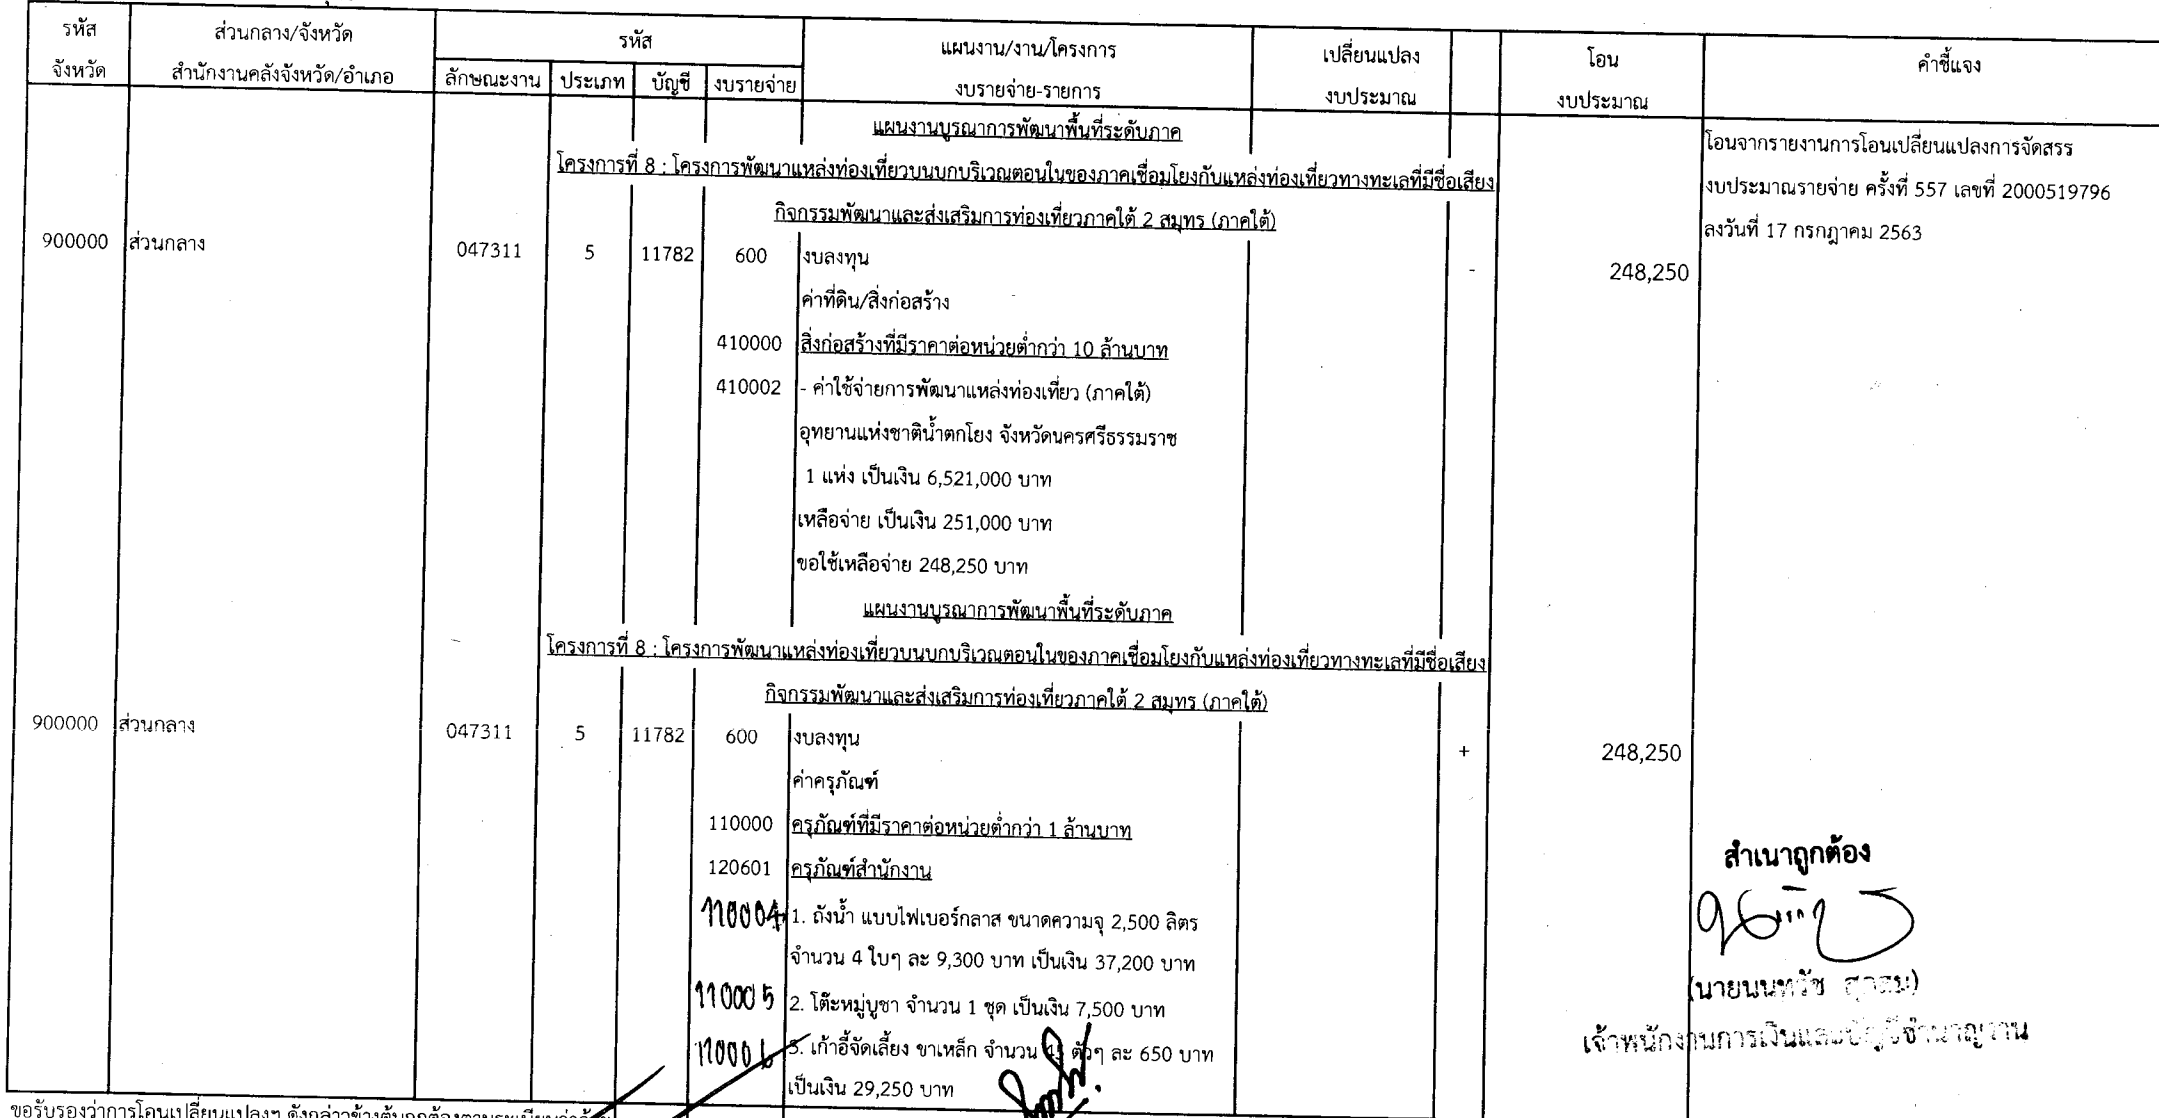 รหัส
จังหวัด
ส่วนกลาง/จังหวัด
สำนักงานคลังจังหวัด/อำเภอ
รหัส
ลักษณะงาน ประเภท บัญชี งบรายจ่าย
แผนงาน/งาน/โครงการ
งบรายจ่าย-รายการ
เปลี่ยนแปลง
งบประมาณ
โอน
งบประมาณ
คำชี้แจง
แผนงานบูรณาการพัฒนาพื้นที่ระดับภาค
โครงการที่ 8 : โครงการพัฒนาแหล่งท่องเที่ยวบนบกบริเวณตอนในของภาคเชื่อมโยงกับแหล่งท่องเที่ยวทางทะเลที่มีชื่อเสียง
กิจกรรมพัฒนาและส่งเสริมการท่องเที่ยวภาคใต้ 2 สมุทร (ภาคใต้)
โอนจากรายงานการโอนเปลี่ยนแปลงการจัดสรร
งบประมาณรายจ่าย ครั้งที่ 557 เลขที่ 2000519796
ลงวันที่ 17 กรกฎาคม 2563
900000 ส่วนกลาง 047311 5 11782 600 งบลงทุน - 248,250
ค่าที่ดิน/สิ่งก่อสร้าง
410000 สิ่งก่อสร้างที่มีราคาต่อหน่วยต่ำกว่า 10 ล้านบาท
410002 - ค่าใช้จ่ายการพัฒนาแหล่งท่องเที่ยว (ภาคใต้)
อุทยานแห่งชาติน้ำตกโยง จังหวัดนครศรีธรรมราช
1 แห่ง เป็นเงิน 6,521,000 บาท
เหลือจ่าย เป็นเงิน 251,000 บาท
ขอใช้เหลือจ่าย 248,250 บาท
แผนงานบูรณาการพัฒนาพื้นที่ระดับภาค
โครงการที่ 8 : โครงการพัฒนาแหล่งท่องเที่ยวบนบกบริเวณตอนในของภาคเชื่อมโยงกับแหล่งท่องเที่ยวทางทะเลที่มีชื่อเสียง
กิจกรรมพัฒนาและส่งเสริมการท่องเที่ยวภาคใต้ 2 สมุทร (ภาคใต้)
900000 ส่วนกลาง 047311 5 11782 600 งบลงทุน + 248,250
ค่าครุภัณฑ์
110000 ครุภัณฑ์ที่มีราคาต่อหน่วยต่ำกว่า 1 ล้านบาท
120601 ครุภัณฑ์สำนักงาน
110004 1. ถังน้ำ แบบไฟเบอร์กลาส ขนาดความจุ 2,500 ลิตร
จำนวน 4 ใบๆ ละ 9,300 บาท เป็นเงิน 37,200 บาท
110005 2. โต๊ะหมู่บูชา จำนวน 1 ชุด เป็นเงิน 7,500 บาท
110006 3. เก้าอี้จัดเลี้ยง ขาเหล็ก จำนวน 45 ตัวๆ ละ 650 บาท
เป็นเงิน 29,250 บาท
สำเนาถูกต้อง
(นายนนทวัช
เจ้าพนักงานการเงินและบัญชีชำนาญงาน
ขอรับรองว่าการโอนเปลี่ยนแปลงฯ ดังกล่าวข้างต้นถูกต้องตามระเบียบ